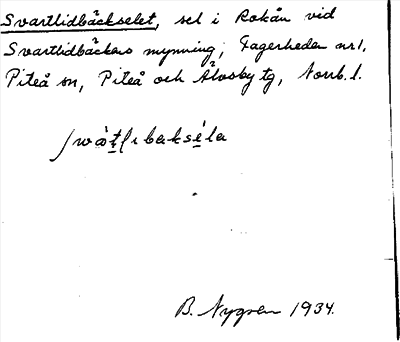 Svartlidbäckselet, sel i Rokån vid
Svartlidbäckens mynning, Fagerheden nr 1,
Piteå sn, Piteå och Älvsby tg, Norrb. l.
B. Nygren 1934.